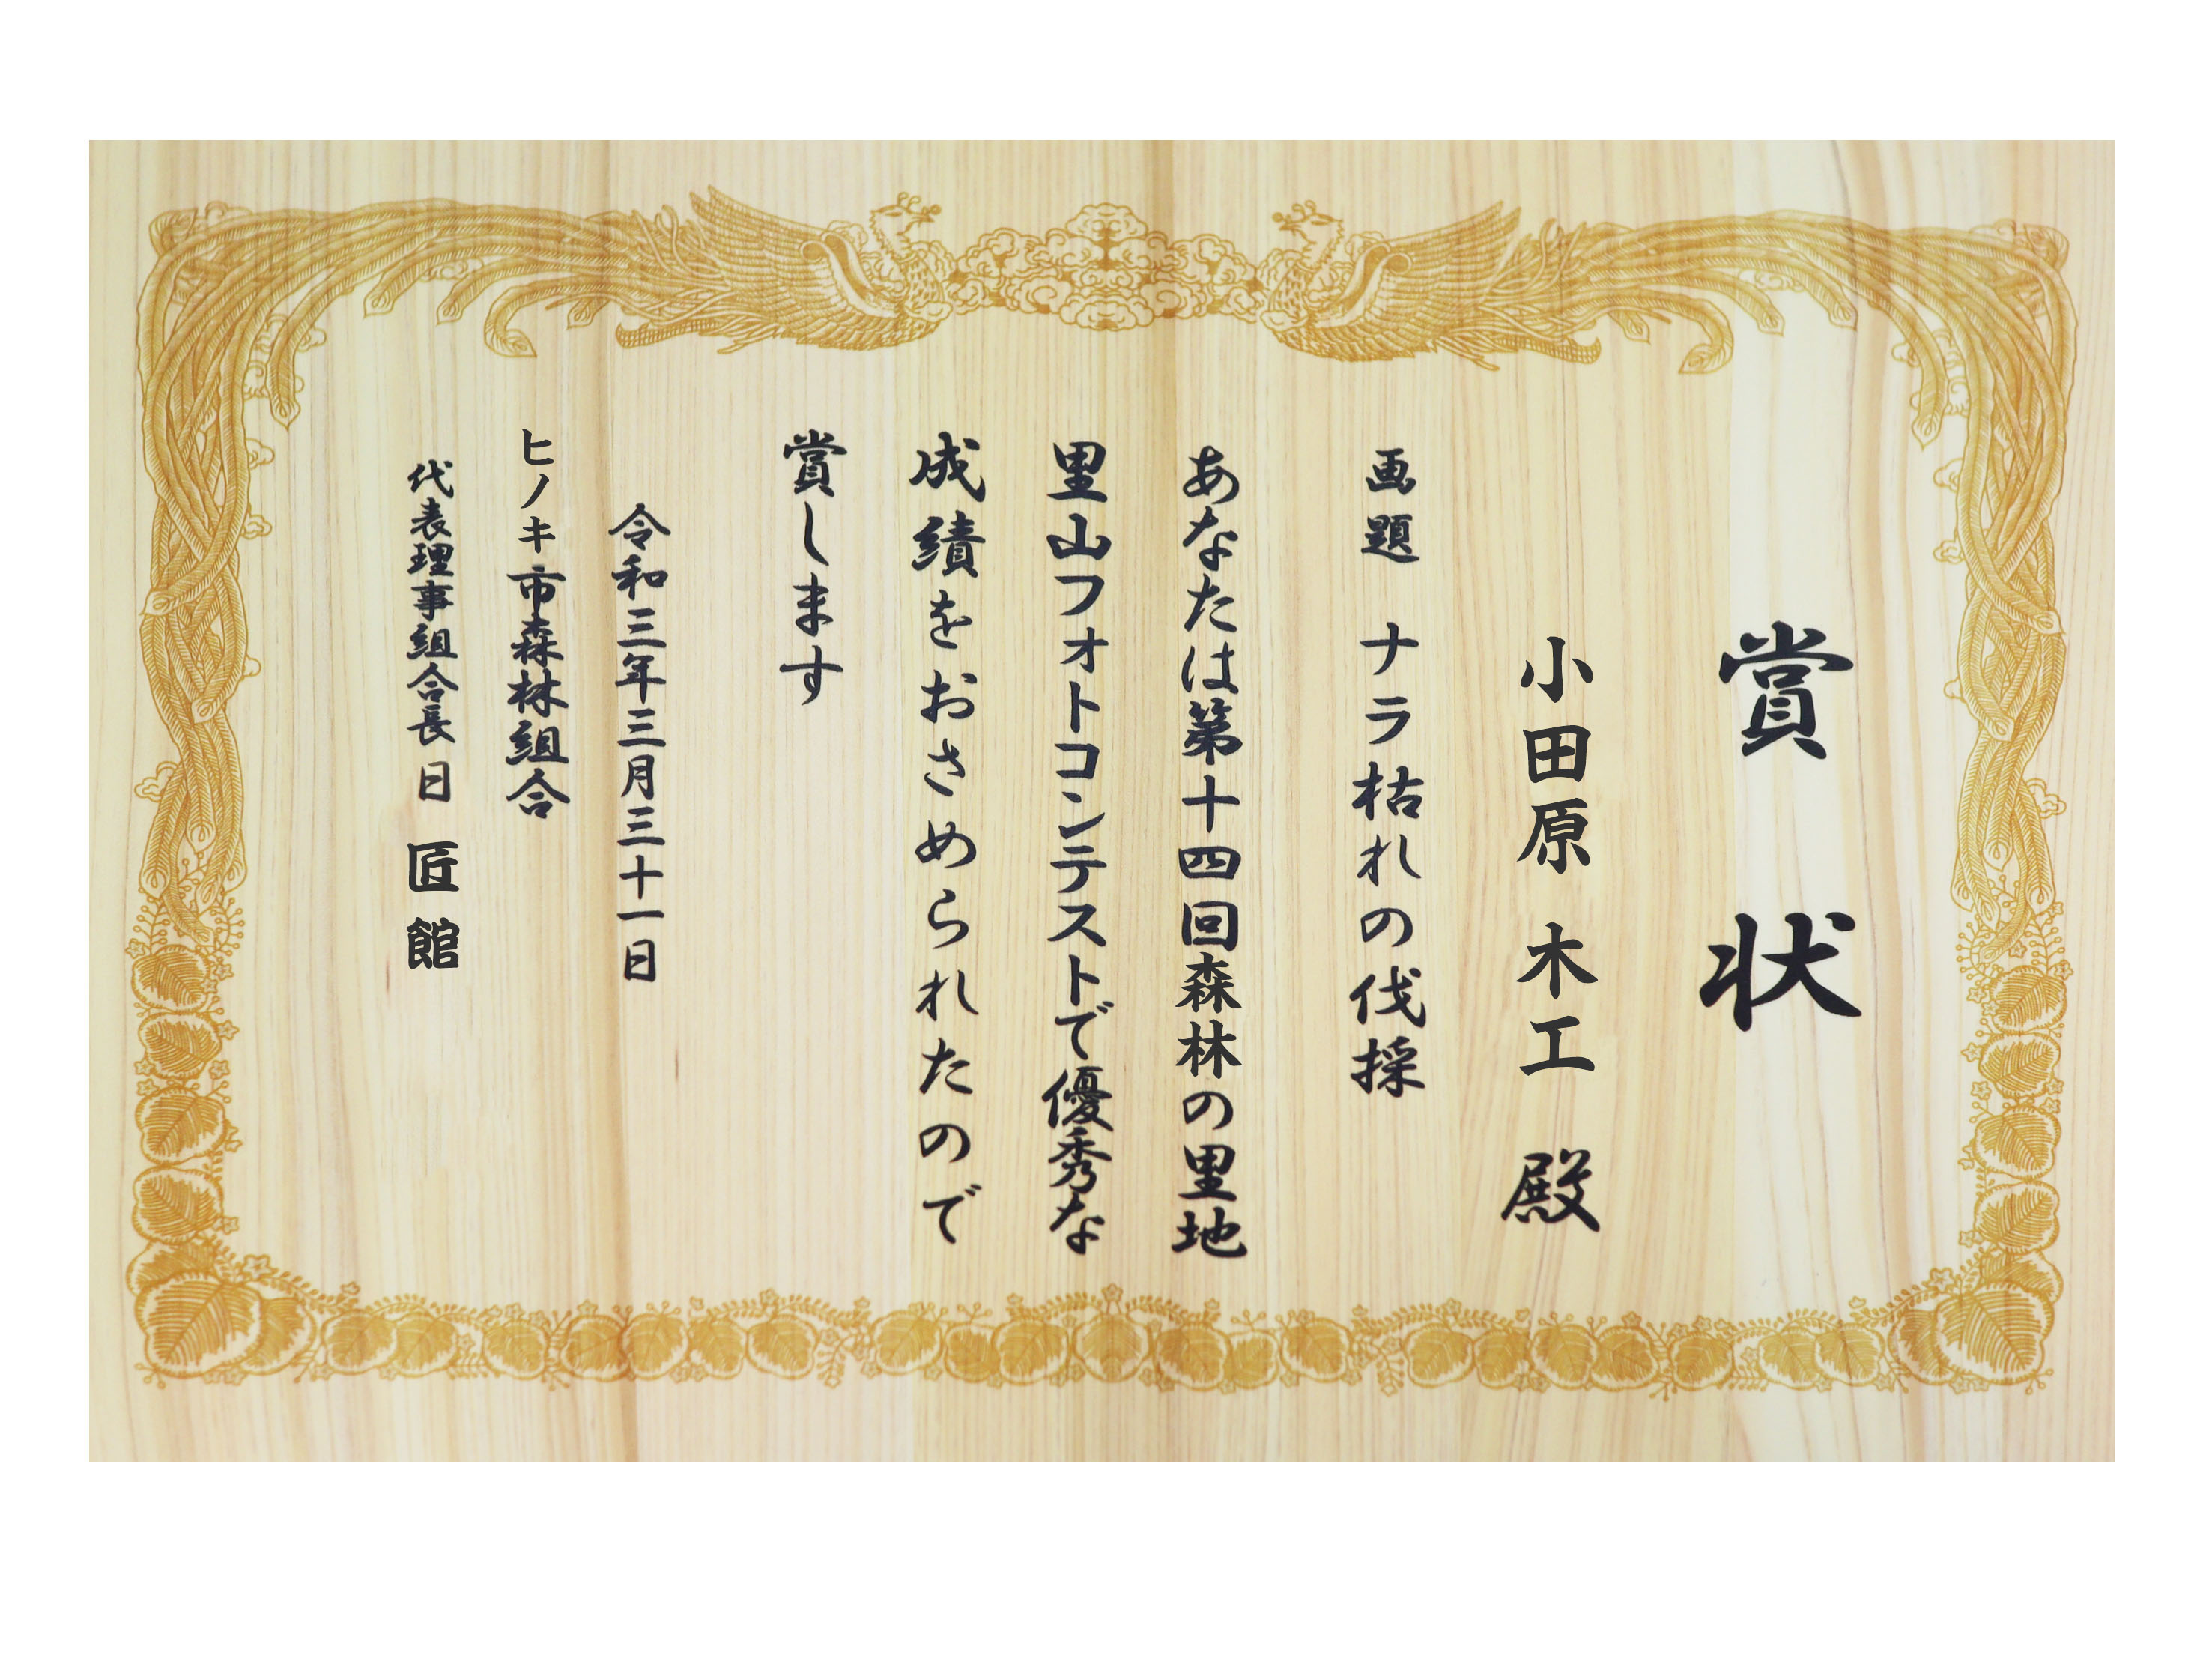 賞状
小田原 木工 殿
画題 ナラ枯れの伐採
あなたは第十四回森林の里地
里山フォトコンテストで優秀な
成績をおさめられたので
賞します
令和三年三月三十一日
ヒノキ市森林組合
代表理事組合長 日 匠館